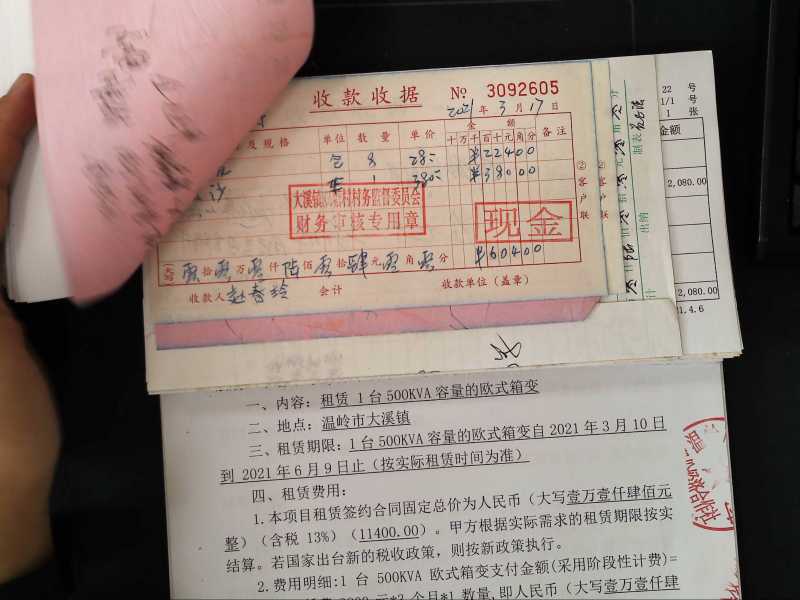 收款收据 № 3092605
2021年3月17日
及规格 单位 数量 单价 金额 备注
十万千百十元角分
包 8 28 ¥22400
沙 车 1 380 ¥38000
大溪镇 村村务监督委员会
财务审核专用章
现金
¥60400
拾 万 仟 陆佰 拾肆元 角 分
收款人 赵春玲 会计 收款单位（盖章）
②客户联
②客户联
制表
出纳
22 号
1/1 号
1 张
金额
2,080.00
2,080.00
1.4.6
一、内容：租赁 1台500KVA容量的欧式箱变
二、地点：温岭市大溪镇
三、租赁期限：1台500KVA容量的欧式箱变自2021年3月10日
到 2021年6月9日止（按实际租赁时间为准）
四、租赁费用：
1.本项目租赁签约合同固定总价为人民币（大写壹万壹仟肆佰元
整）（含税 13%）（11400.00）。甲方根据实际需求的租赁期限按实
结算。若国家出台新的税收政策，则按新政策执行。
2.费用明细:1 台 500KVA 欧式箱变支付金额(采用阶段性计费)=
元*3 个月*1 数量,即人民币（大写壹万壹仟肆